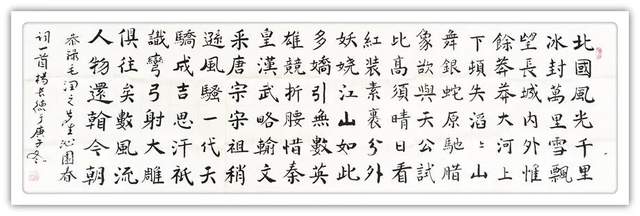 北國風光千里
冰封萬里雪飄
望長城內外惟
餘莽莽大河上
下頓失滔〻山
舞銀蛇原馳臘
象欲與天公試
比髙須晴日看
紅裝素裹分外
妖嬈江山如此
多嬌引無數英
雄競折腰惜秦
皇漢武略輸文
采唐宗宋祖稍
遜風騷一代天
驕成吉思汗祇
識彎弓射大雕
俱往矣數風流
人物還看今朝
恭錄毛潤之先生沁園春
詞一首楊長德于庚子冬